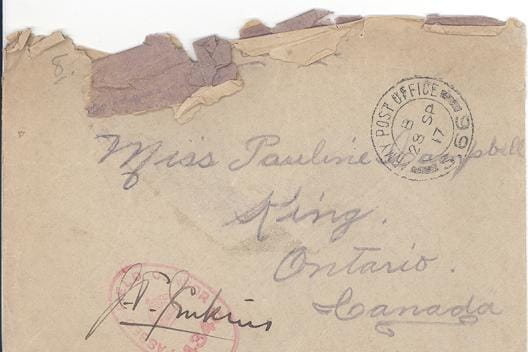 8.
ARMY POST OFFICE
B
28 SP
17
S 69
Miss Pauline Campbell
King.
Ontario.
Canada
J.T. Jenkins